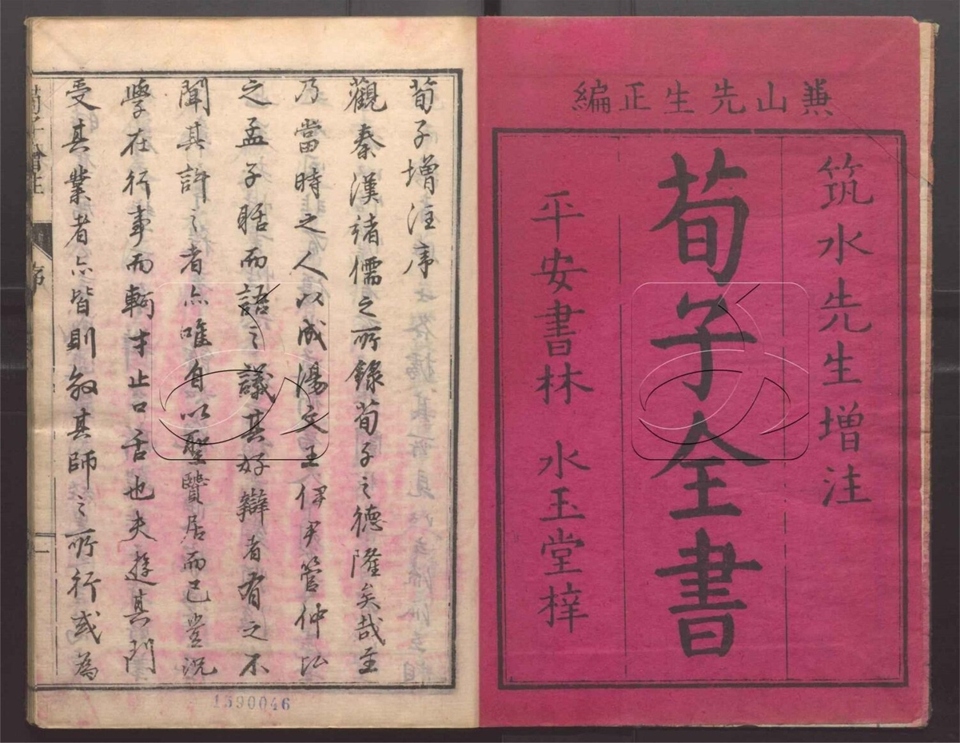 兼山先生正編
筑水先生增注
荀子全書
平安書林　水玉堂梓
荀子增注序
觀秦漢諸儒之所錄荀子之德隆矣哉至
乃當時之人以成湯文王伊尹管仲比
之孟子聒而語之議其好辯者有之不
聞其訐之者亦唯自以聖賢居而已豈況
學在行事而輒才止口舌也夫遊其門
受其業者亦皆則效其師之所行或為
荀子增注
序
一
1390046